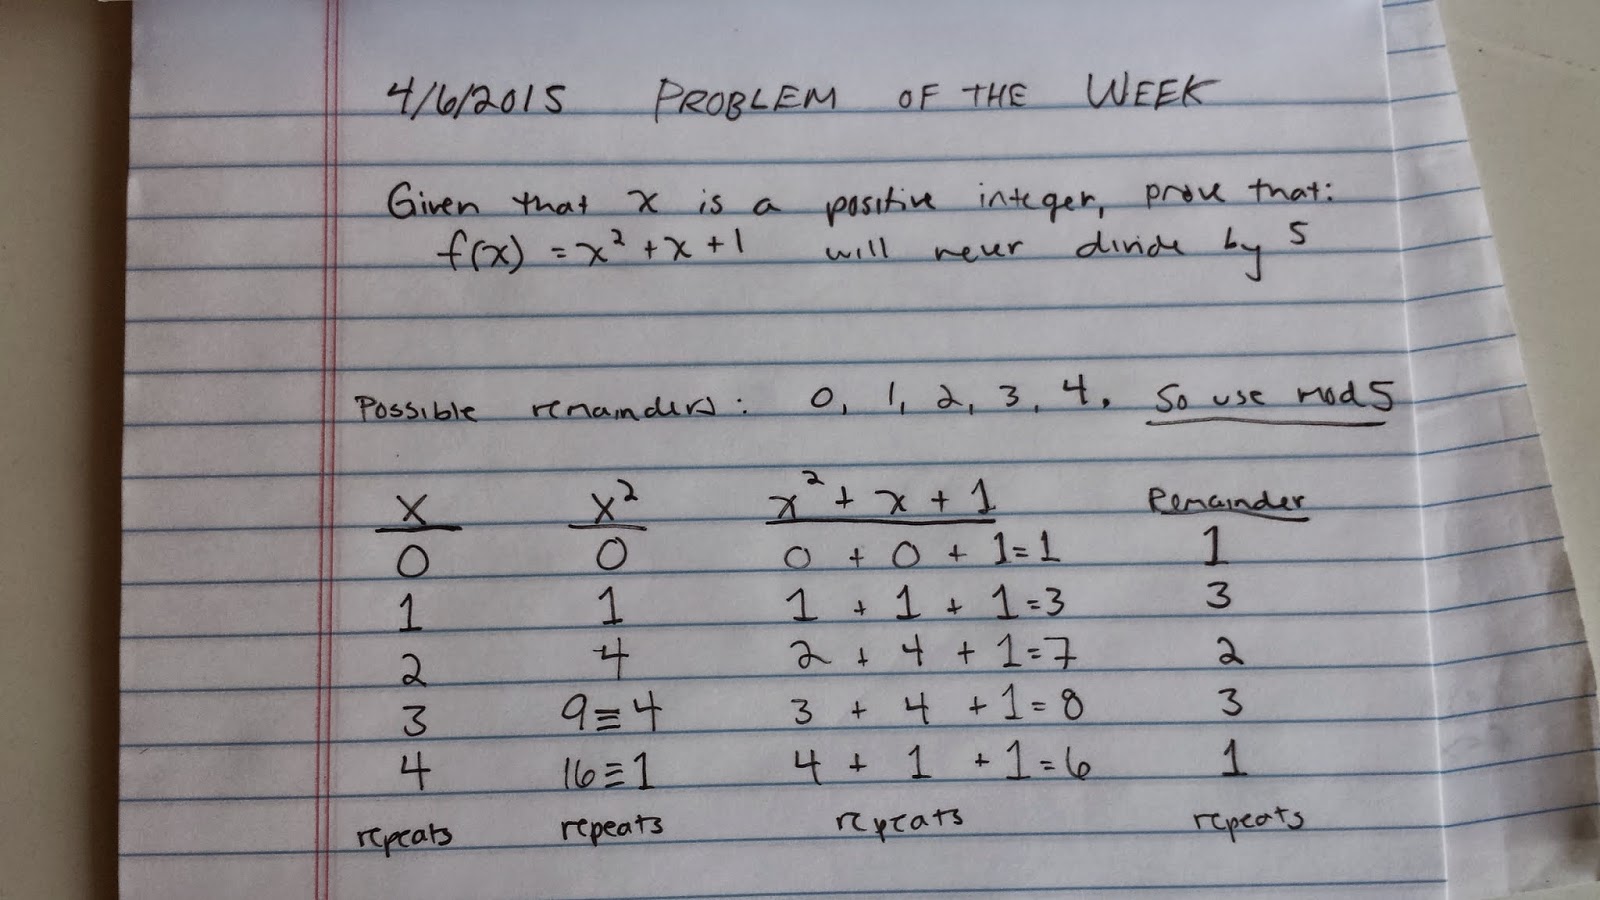 4/6/2015 PROBLEM OF THE WEEK
Given that x is a positive integer, prove that:
f(x) = x² + x + 1 will never divide by 5
Possible remainders: 0, 1, 2, 3, 4. So use mod 5
x x² x² + x + 1 Remainder
0 0 0 + 0 + 1 = 1 1
1 1 1 + 1 + 1 = 3 3
2 4 2 + 4 + 1 = 7 2
3 9 ≡ 4 3 + 4 + 1 = 8 3
4 16 ≡ 1 4 + 1 + 1 = 6 1
repeats repeats repeats repeats